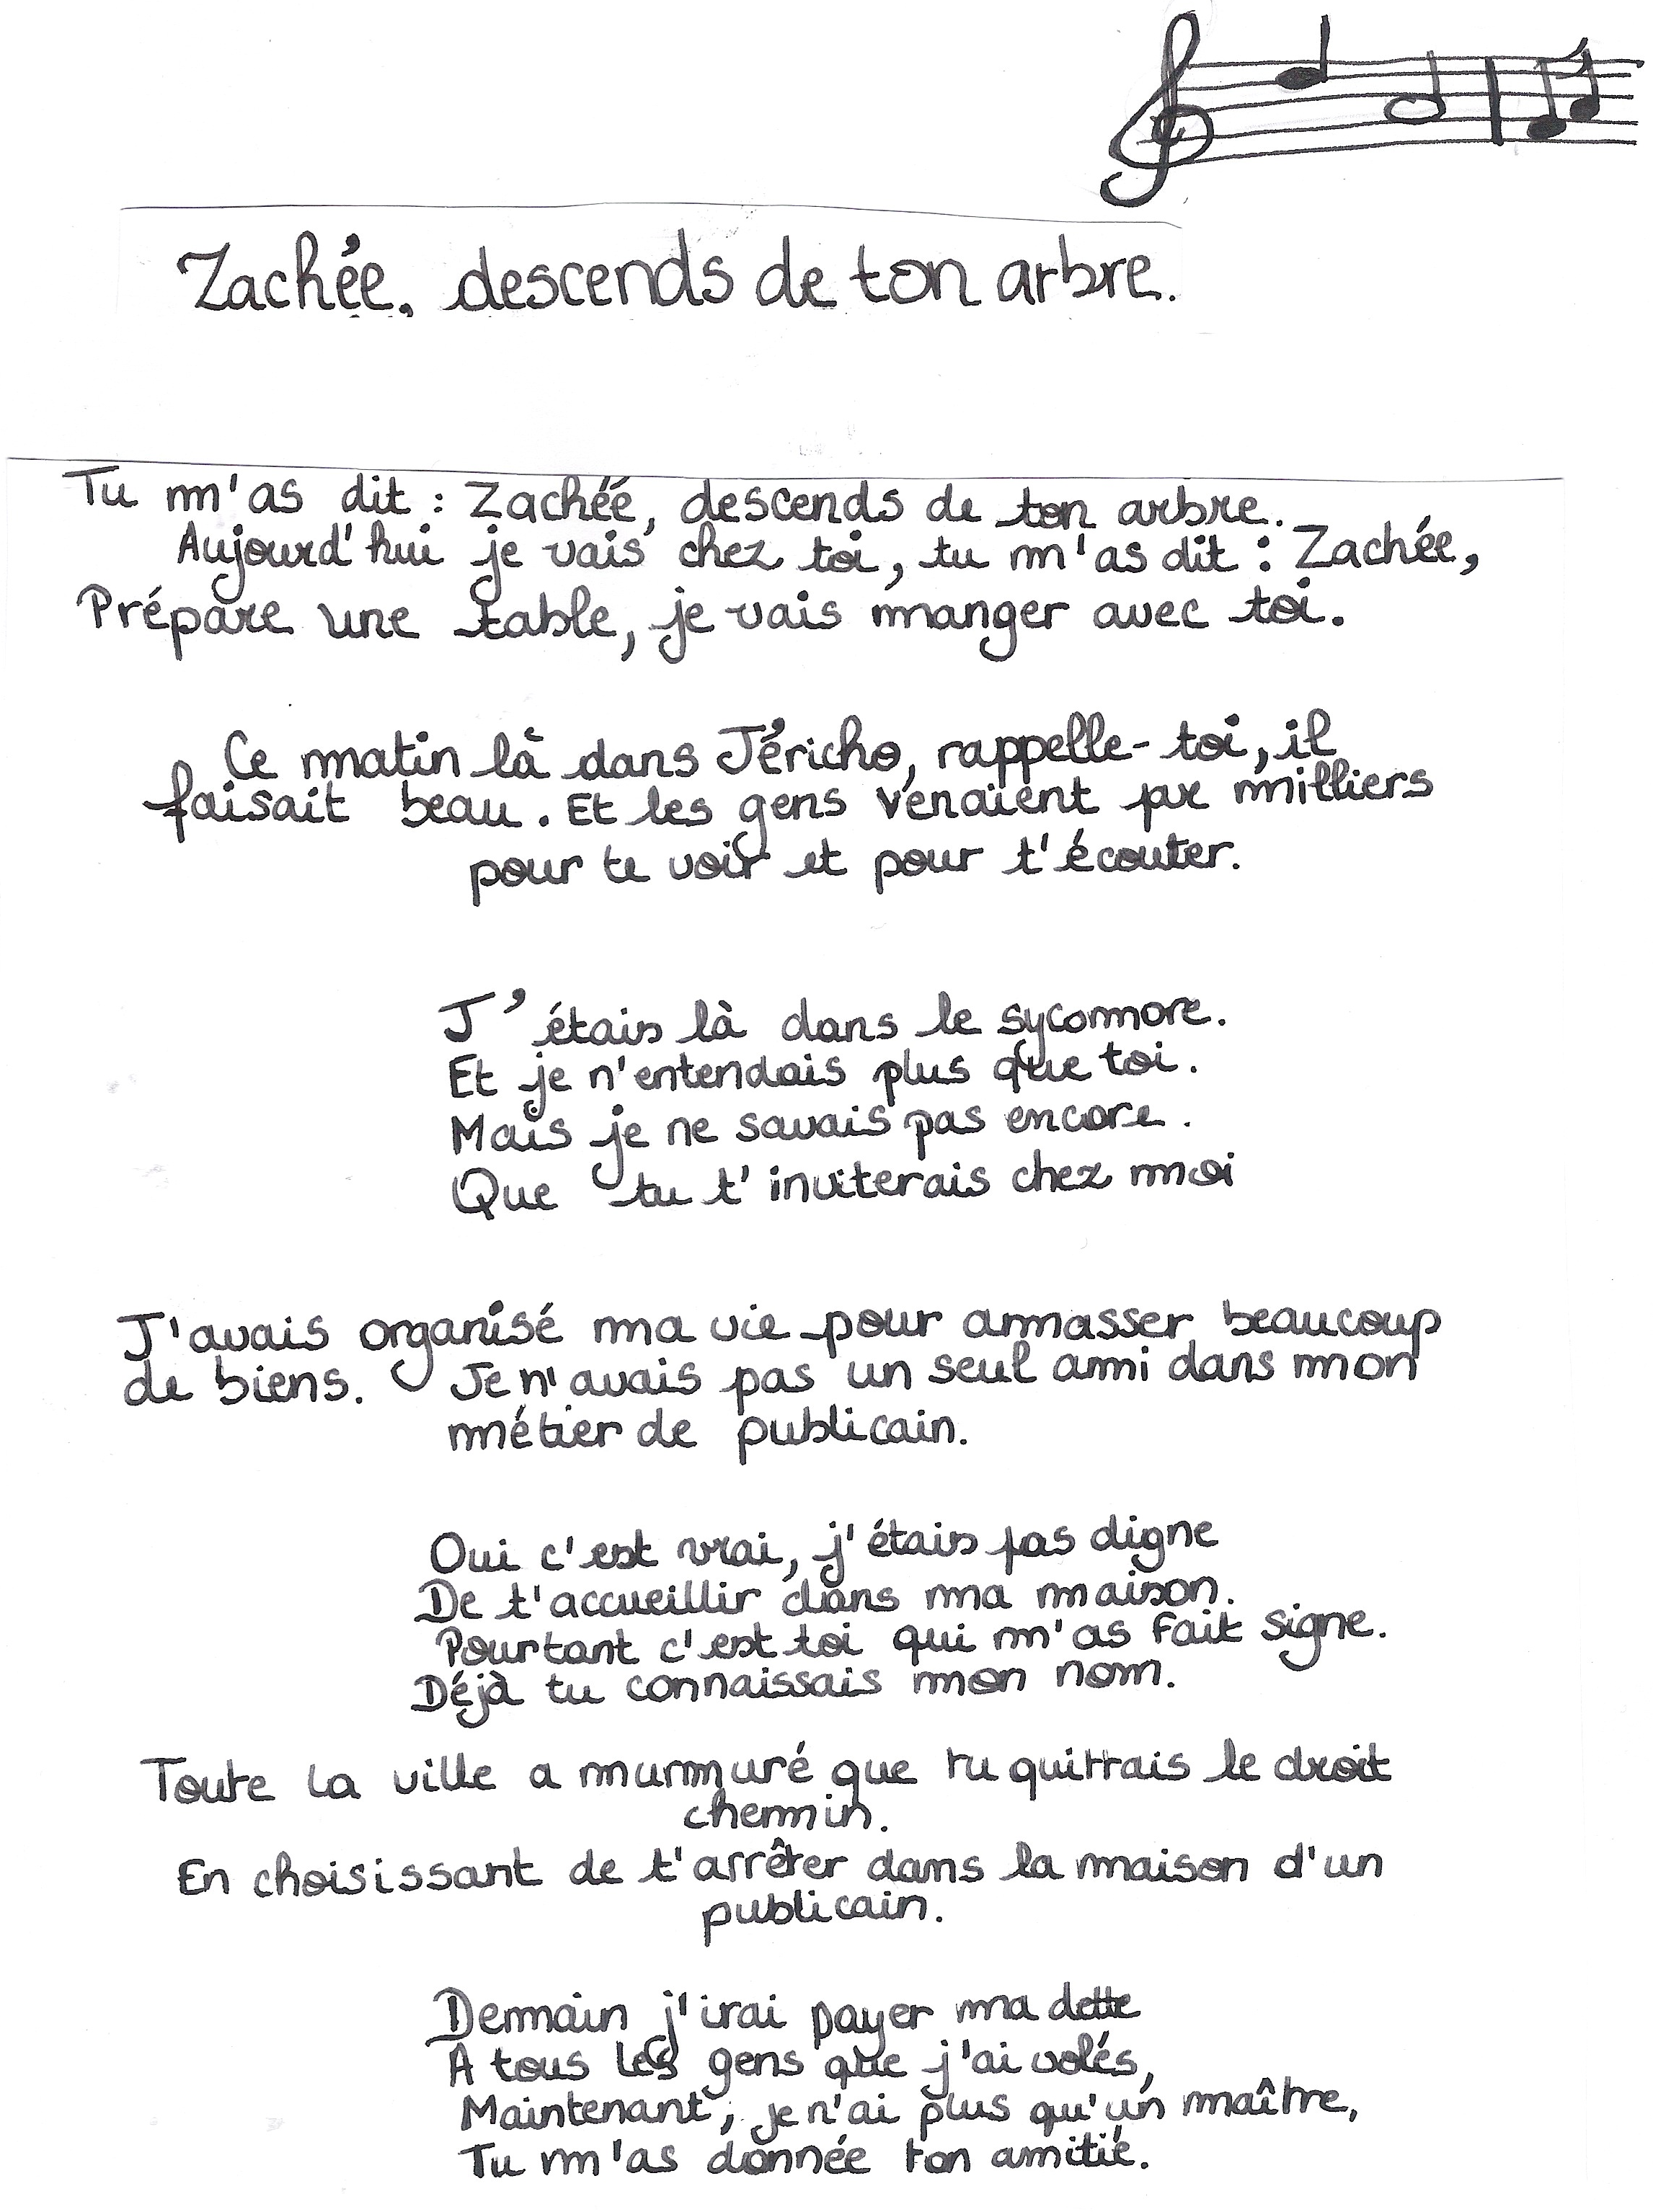 Zachée, descends de ton arbre.
Tu m'as dit : Zachée, descends de ton arbre.
Aujourd'hui je vais chez toi, tu m'as dit : Zachée,
Prépare une table, je vais manger avec toi.
Ce matin là dans Jéricho, rappelle-toi, il
faisait beau. Et les gens venaient par milliers
pour te voir et pour t'écouter.
J'étais là dans le sycomore.
Et je n'entendais plus que toi.
Mais je ne savais pas encore.
Que tu t'inviterais chez moi
J'avais organisé ma vie pour amasser beaucoup
de biens. Je n'avais pas un seul ami dans mon
métier de publicain.
Oui c'est vrai, j'étais pas digne
De t'accueillir dans ma maison.
Pourtant c'est toi qui m'as fait signe.
Déjà tu connaissais mon nom.
Toute la ville a murmuré que tu quittais le droit
chemin.
En choisissant de t'arrêter dans la maison d'un
publicain.
Demain j'irai payer ma dette
A tous les gens que j'ai volés,
Maintenant, je n'ai plus qu'un maître,
Tu m'as donnée ton amitié.